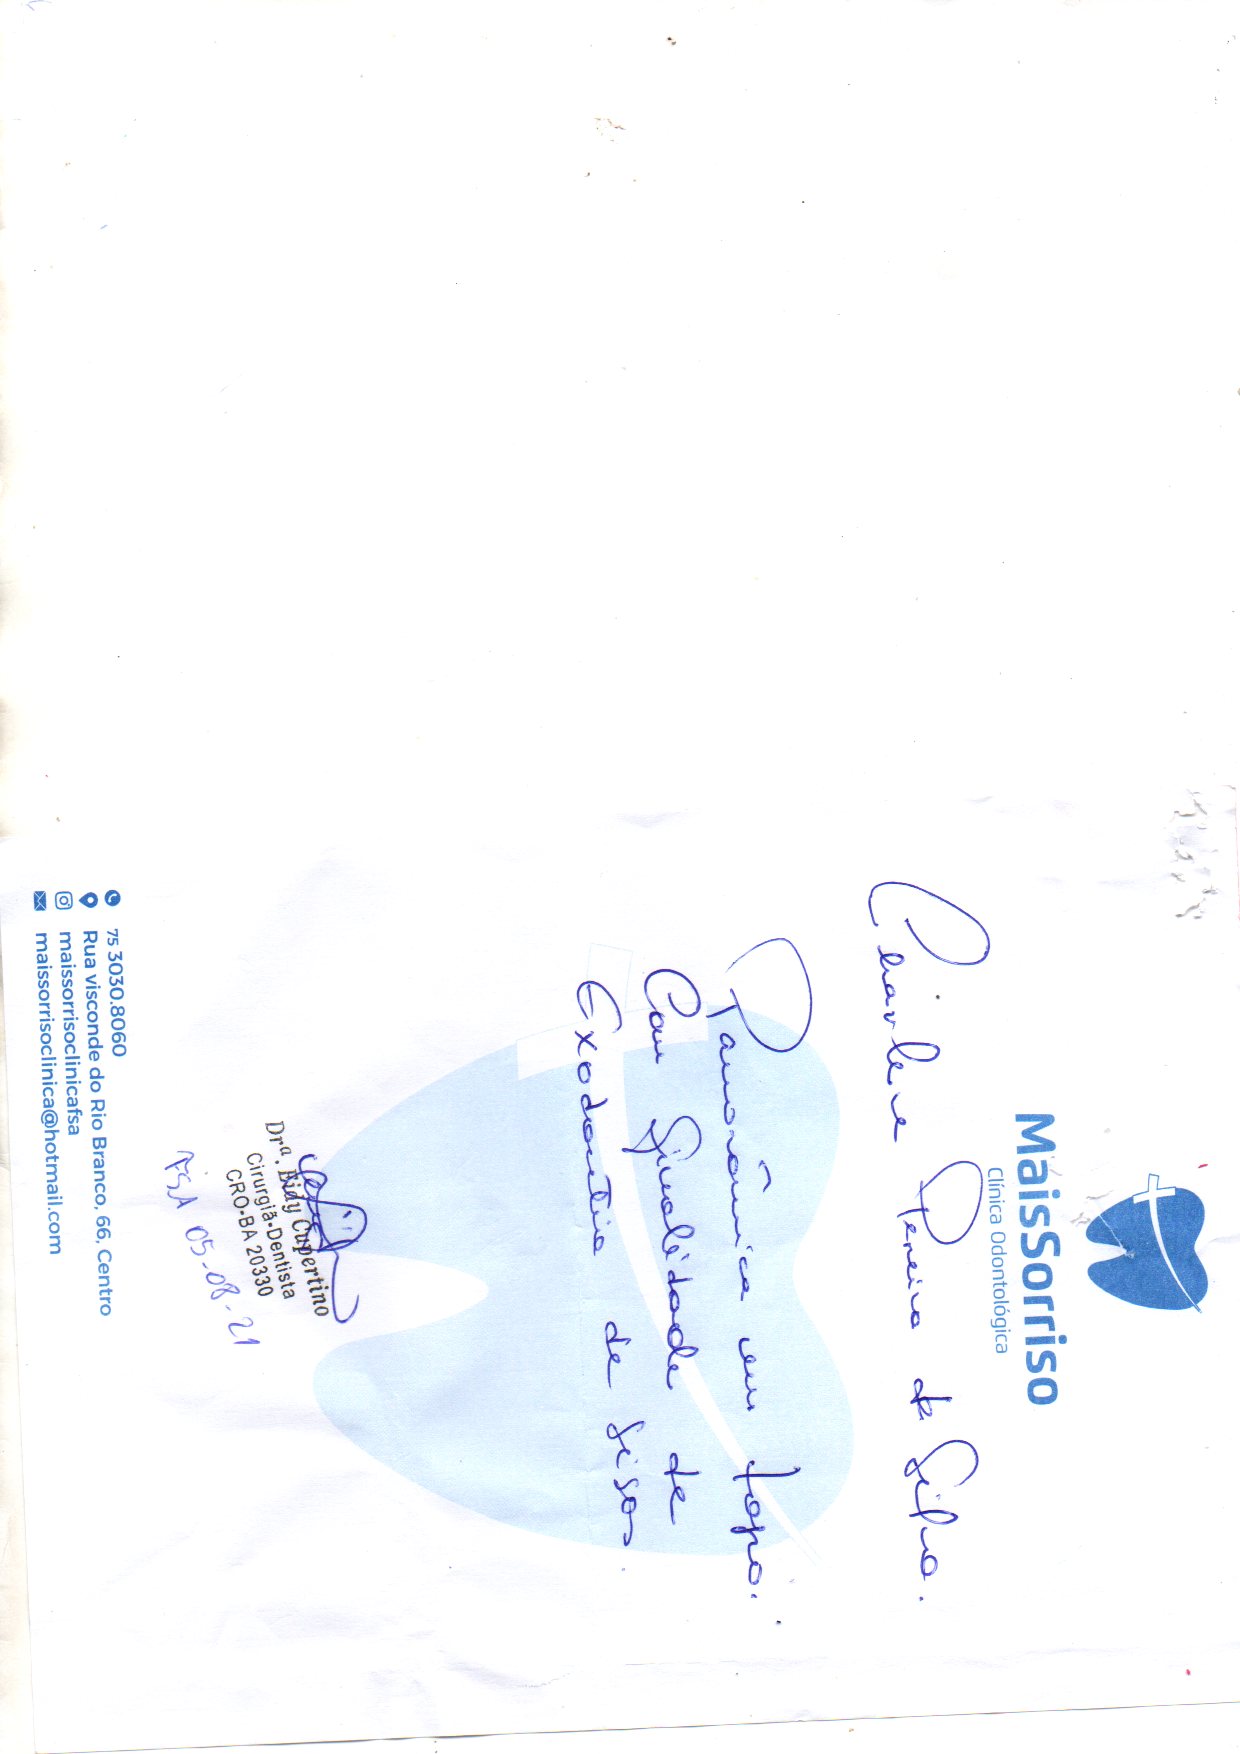 MaisSorriso
Clínica Odontológica
Charlene Pereira da Silva.
Panorâmica em topo.
Com finalidade de
Exodontia de siso.
Drª. Eidy Cupertino
Cirurgiã-Dentista
CRO-BA 20330
FSA 05-08-21
75 3030.8060
Rua visconde do Rio Branco, 66, Centro
maissorrisoclinicafsa
maissorrisoclinica@hotmail.com